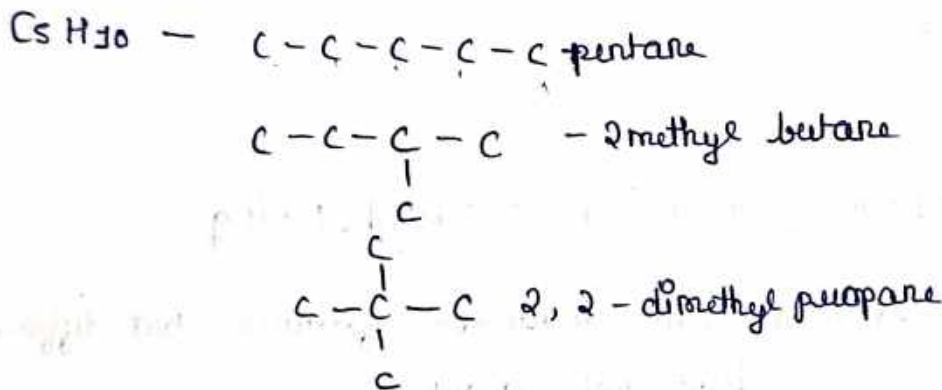 C5 H10 - C - C - C - C - C pentane
C - C - C - C - 2 methyl butane
|
C
C
|
C - C - C 2, 2 - dimethyl propane
|
C